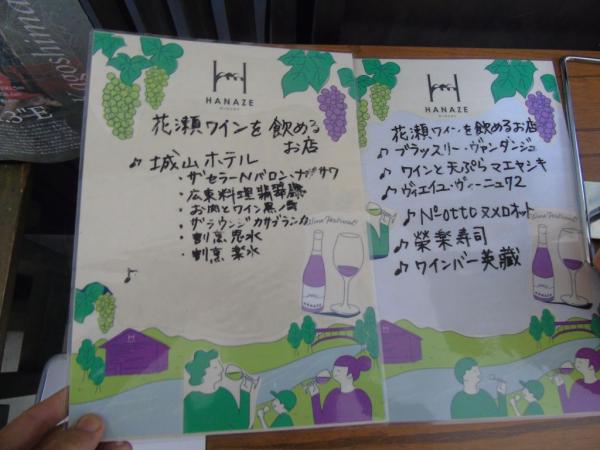 HANAZE
WINERY
花瀬ワインを飲める
お店
♪ 城山ホテル
・ザセラーNバロン・ナガサワ
・広東料理翡翠廳
・お肉とワイン黒ノ雫
・ザラウンジカサブランカ
・割烹 思水
・割烹 楽水
♪
Wine Festival
HANAZE
HANAZE
WINERY
花瀬ワインを飲めるお店
♪ ブラッスリー・ヴァンダンジュ
♪ ワインと天ぷらマエヤシキ
♪ ヴィエイユ・ヴィーニュ72
♪ Nºotto ヌメロオット
♪ 榮楽寿司
♪ ワインバー英藏
Wine Festival
HANAZE